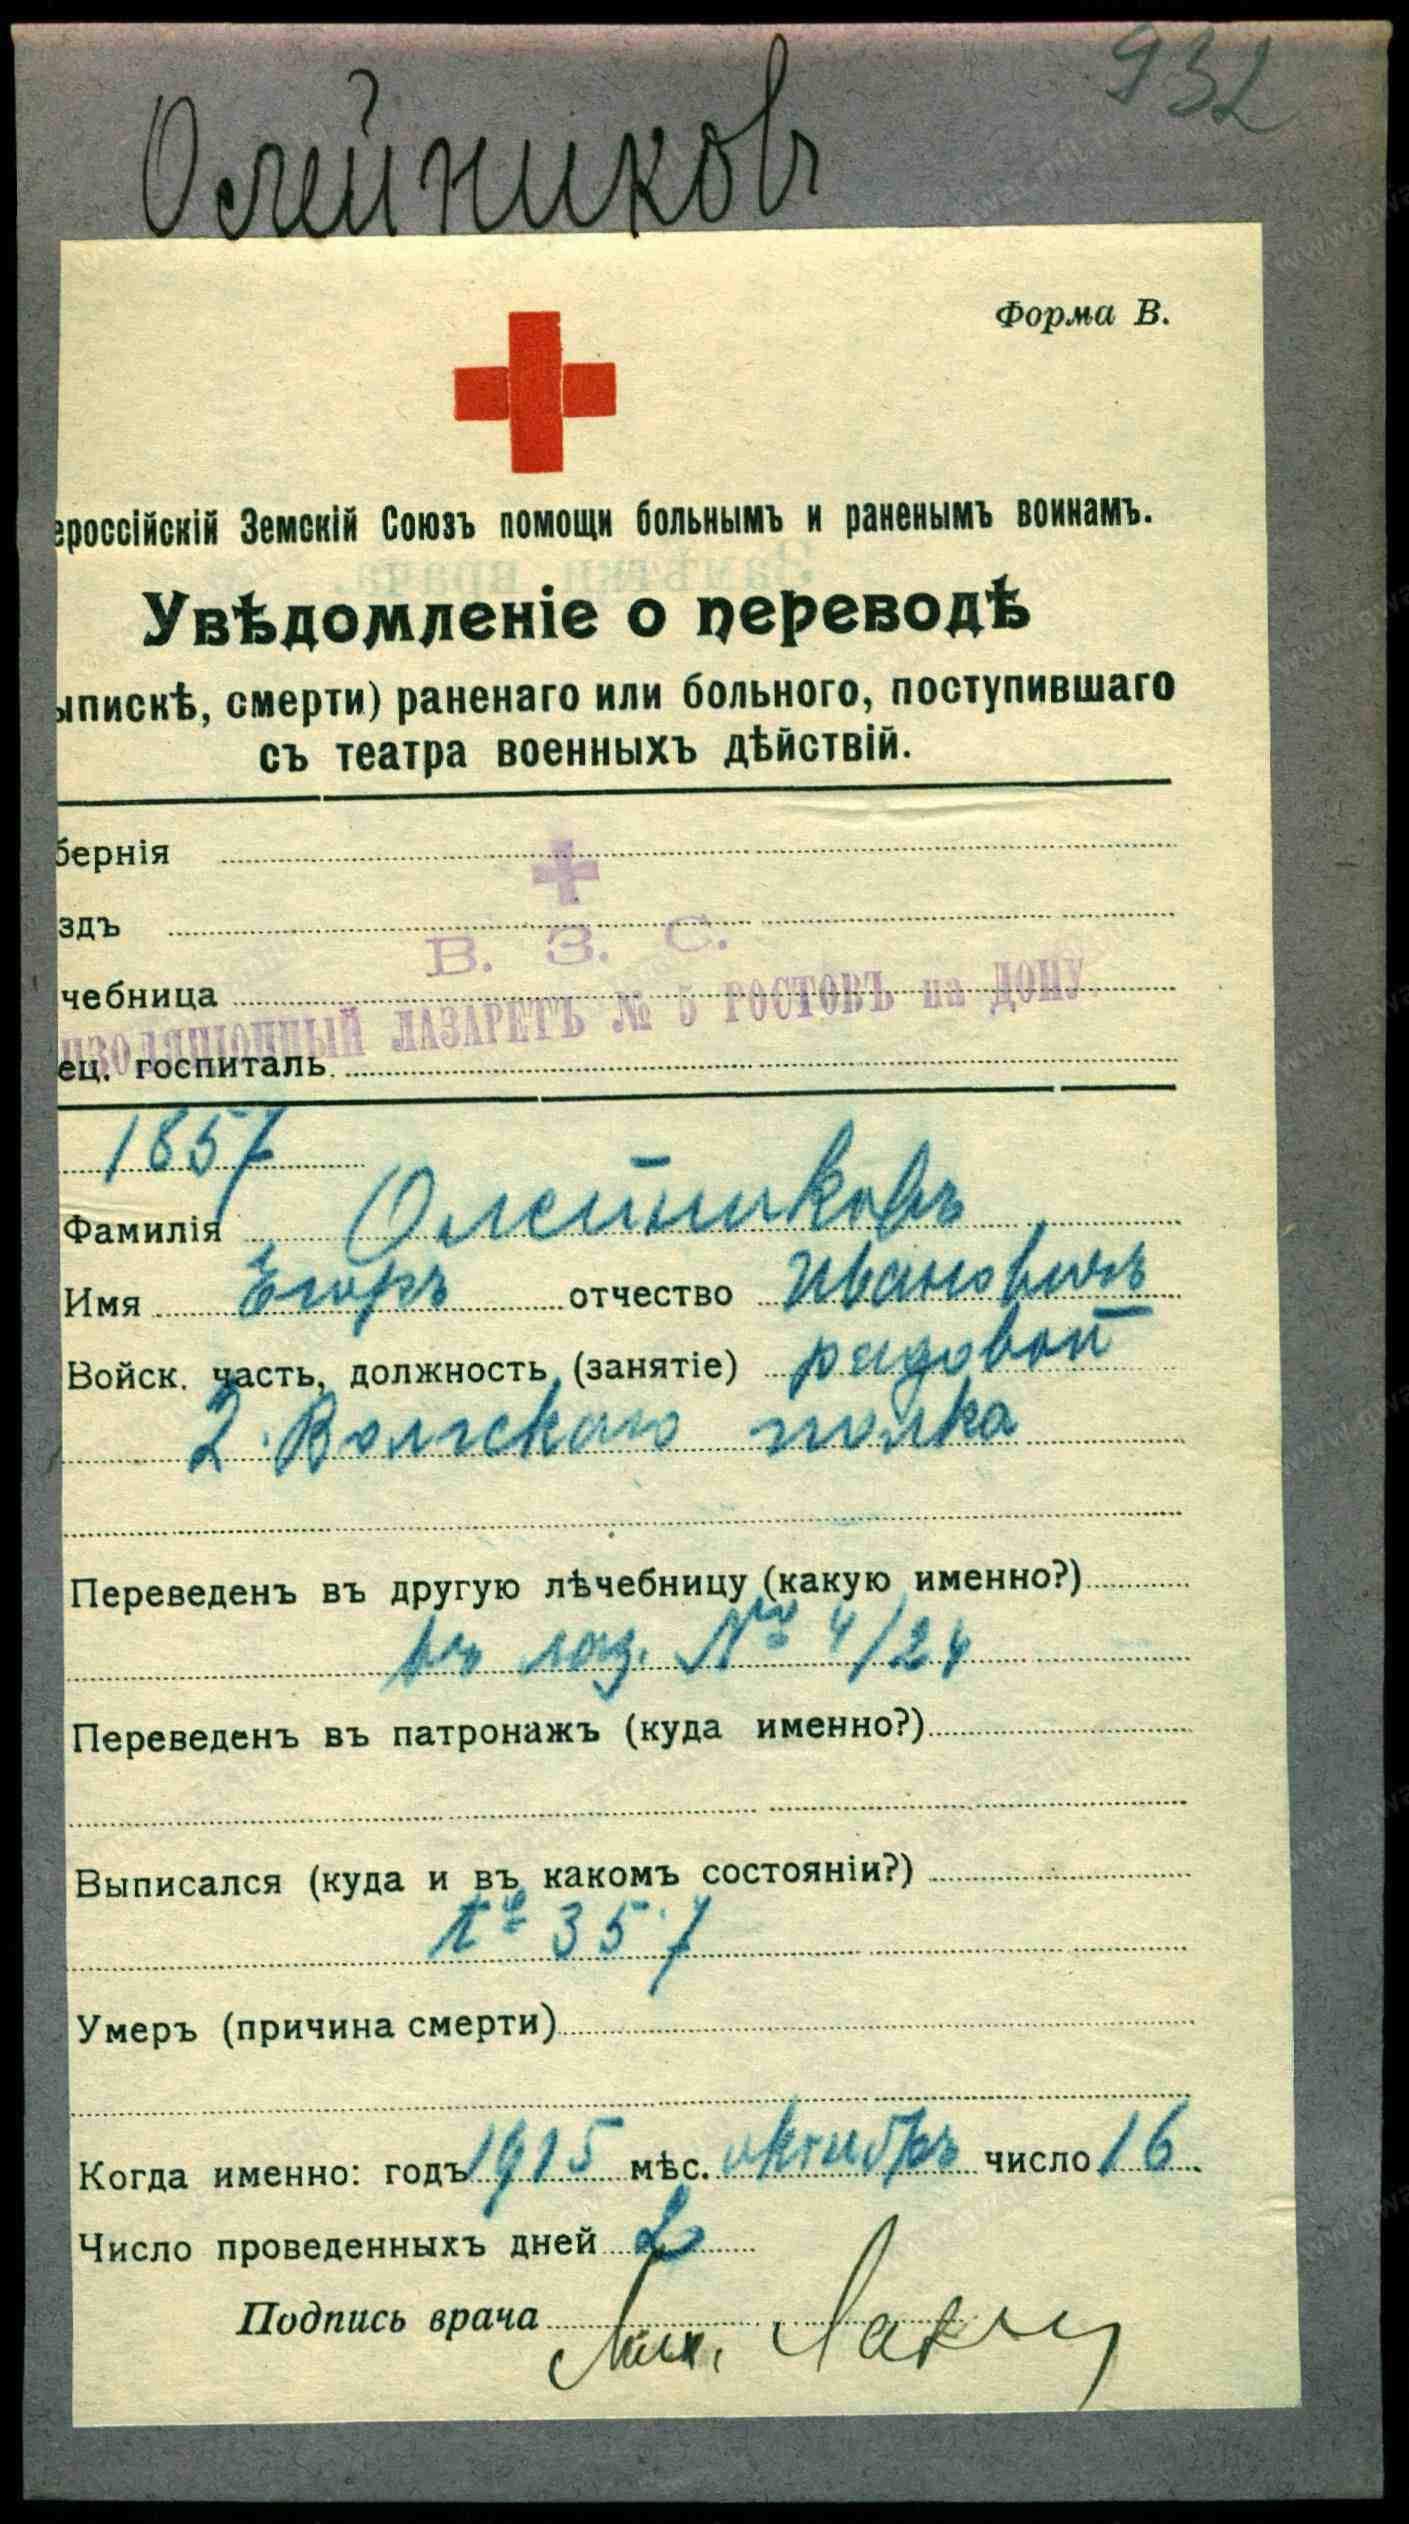 932
Олейников
Форма В.
ероссійскій Земскій Союзъ помощи больнымъ и раненымъ воинамъ.
Увѣдомленіе о переводѣ
ыпискѣ, смерти) раненаго или больного, поступившаго
съ театра военныхъ дѣйствій.
бернія
здъ
В. З. С.
чебница
ИЗОЛЯЦІОННЫЙ ЛАЗАРЕТЪ № 5 РОСТОВЪ на ДОНУ.
ец. госпиталь
1857
Фамилія Олейниковъ
Имя Егоръ отчество Ивановичъ
Войск. часть, должность (занятіе) рядовой
2 Волгскаго полка
Переведенъ въ другую лѣчебницу (какую именно?)
въ лаз. № 4/24
Переведенъ въ патронажъ (куда именно?)
Выписался (куда и въ какомъ состояніи?)
357
Умеръ (причина смерти)
Когда именно: годъ 1915 мѣс. октябрь число 16
Число проведенныхъ дней 2
Подпись врача